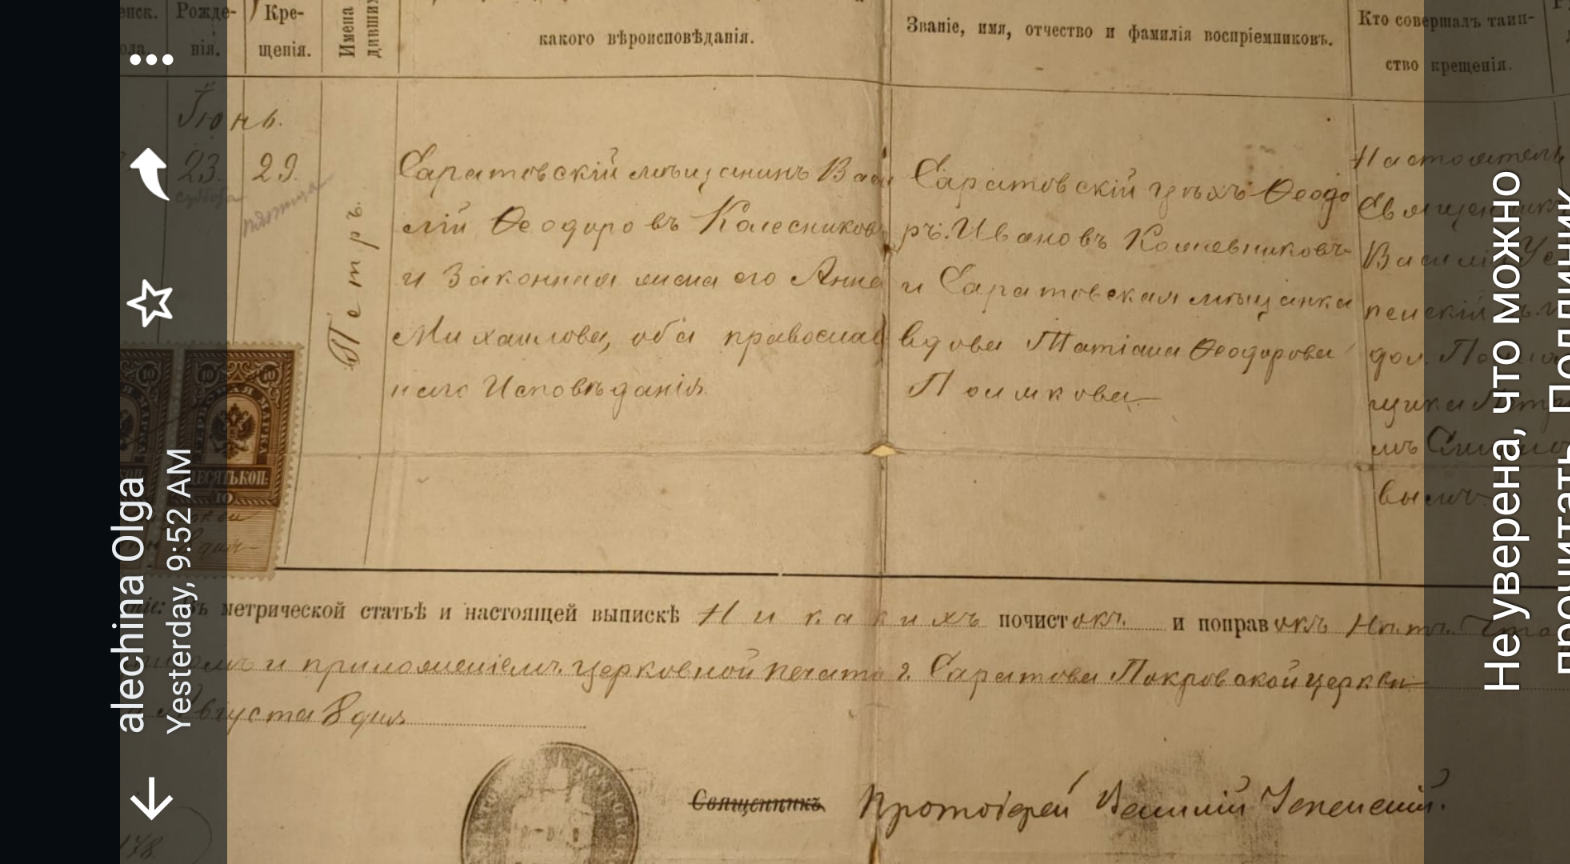 Рожде-
нія.
Кре-
щенія.
Имена
какого вѣроисповѣданія.
Званіе, имя, отчество и фамилія воспріемниковъ.
Кто совершалъ таин-
ство крещенія.
Іюнь.
23.
суббота
29.
пятница
Петръ.
Саратовскій мѣщанинъ Васи
лій Ѳеодоровъ Колесников
и законная жена его Анна
Михаилова, оба православ
наго Исповѣданія
Саратовскій цѣхъ Ѳеодо
ръ Ивановъ Кожевниковъ
и Саратовская мѣщанка
вдова Татіана Ѳеодорова
Настоятель
Священникъ
Василій Ус
пенскій
вымъ
метрической статьѣ и настоящей выпискѣ Никакихъ почистокъ и поправокъ Нѣтъ. Что
и приложеніемъ церковной печати г. Саратова Покровской церкви
Августа 8 дня
Священникъ Протоіерей Василій Успенскій.
alechina Olga
Yesterday, 9:52 AM
Не уверена, что можно
прочитать. Подлинник